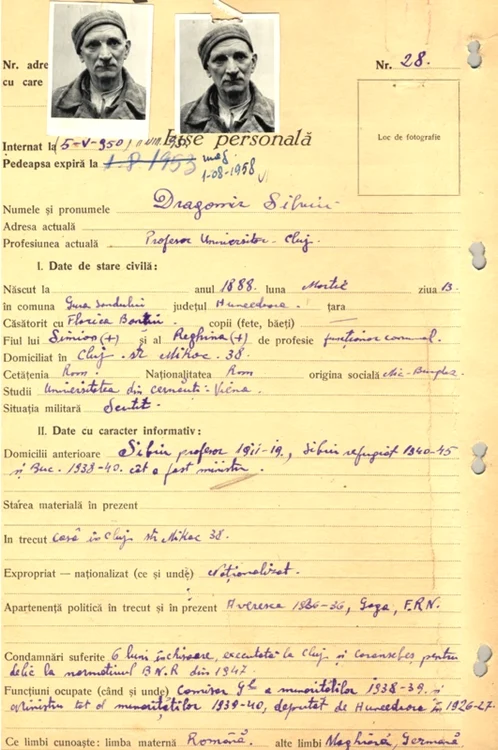 Nr. adre
cu care
Nr. 28.
Loc de fotografie
Fișe personală
Internat la 5-V-950
Pedeapsa expiră la 1-8-1953
1-08-1958
Numele și pronumele Dragomir Silviu
Adresa actuală
Profesiunea actuală Profesor Universitar - Cluj.
I. Date de stare civilă:
Născut la anul 1888. luna Martie ziua 13.
în comuna Gura Sandului județul Huneedoara. țara
Căsătorit cu Florica Bontiu. copii (fete, băeți) —
Fiul lui Simion (+) și al Reghina (+) de profesie funcționar comunal.
Domiciliat în Cluj. str Mikoc. 38.
Cetățenia Rom Naționalitatea Rom origina socială Mic-Burghez
Studii Universitatea din Cernăuți - Viena.
Situația militară Scutit.
II. Date cu caracter informativ:
Domicilii anterioare Sibiu profesor 1911-19., Sibiu refugiat 1940-45
și Buc. 1938-40. cât a fost ministru.
Starea materială în prezent
În trecut casă în Cluj str Mikoc 38.
Expropriat — naționalizat (ce și unde) Naționalizat.
Apartenența politică în trecut și în prezent Averescu 1926-36, Goga, F.R.N.
Condamnări suferite 6 luni închisoare, executate la Cluj și Caransebeș, pentru
delic la normativul B.N.R din 1947.
Funcțiuni ocupate (când și unde) Comisar Gl. a minorităților 1938-39. și
Ministru tot al minorităților 1939-40, deputat de Huneedoara în 1926-27.
Ce limbi cunoaște: limba maternă Română. alte limbi Maghiară, Germană